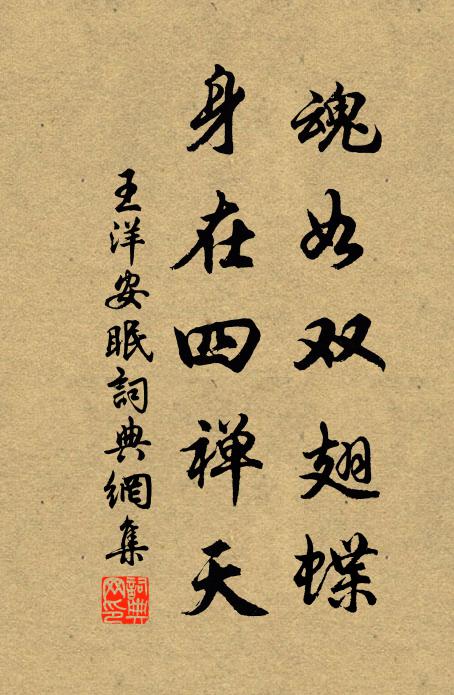 魂如双翅蝶
身在四禅天
王洋安眠詞典網集
詞典网印